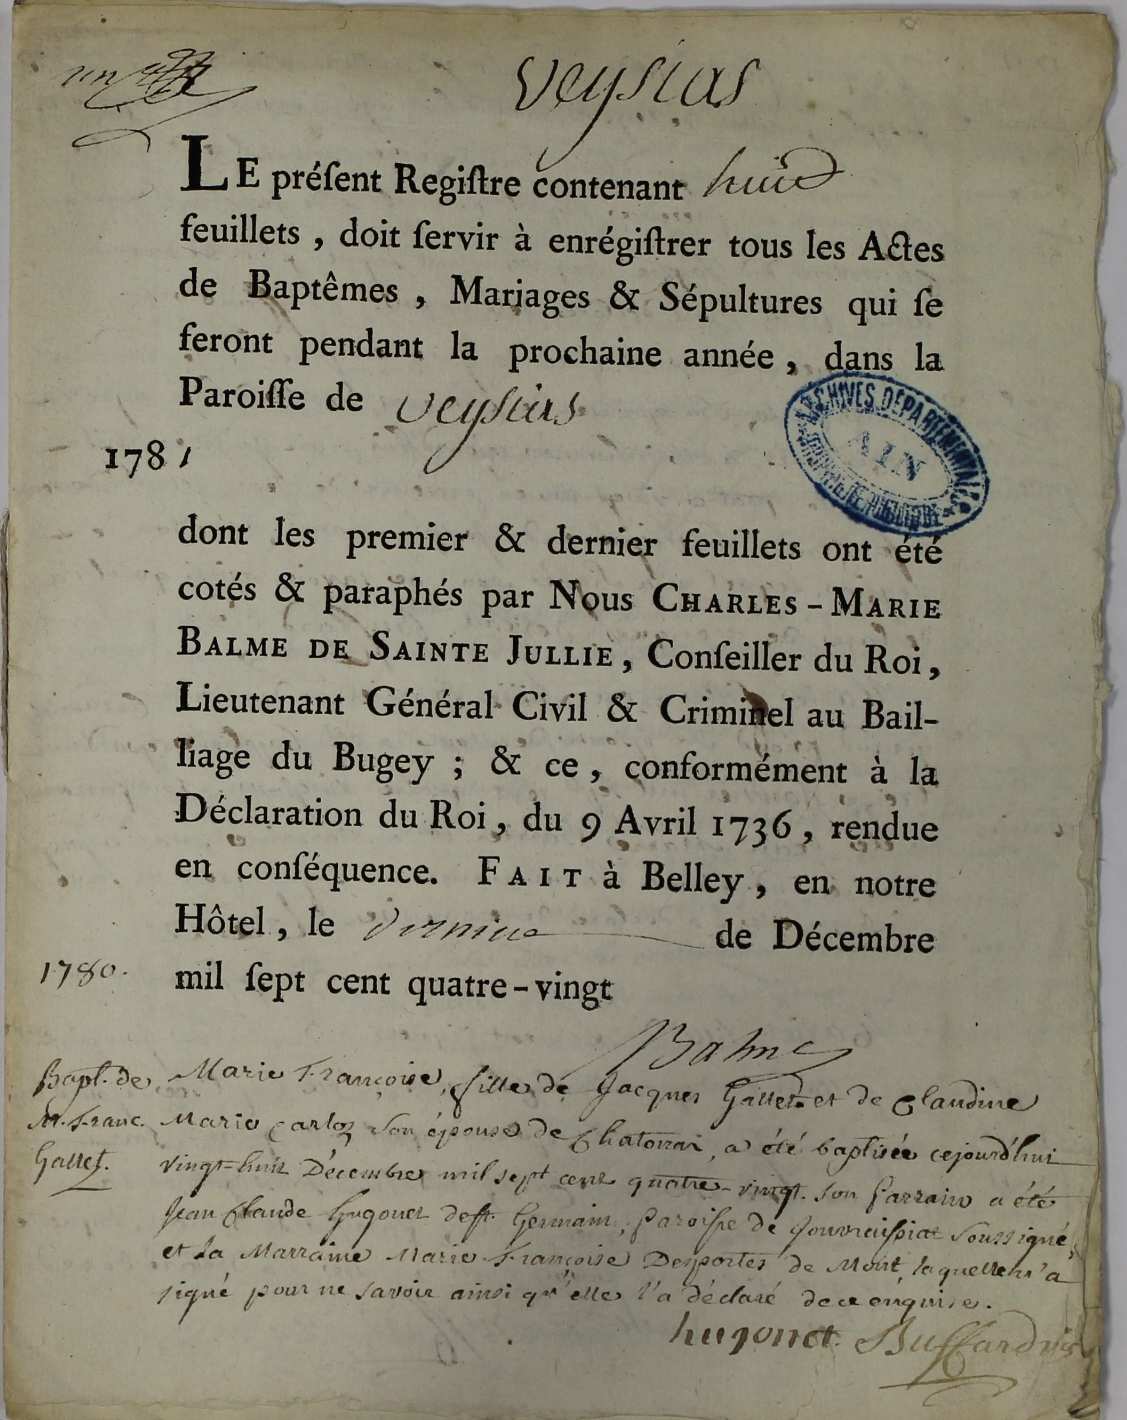 Veysias
LE préſent Regiſtre contenant huit
feuillets, doit ſervir à enrégiſtrer tous les Actes
de Baptêmes, Mariages & Sépultures qui ſe
feront pendant la prochaine année, dans la
Paroiſſe de Veysias
1781
ARCHIVES DÉPARTEMENTALES
AIN
PROPRIÉTÉ PUBLIQUE
dont les premier & dernier feuillets ont été
cotés & paraphés par Nous CHARLES-MARIE
BALME DE SAINTE JULLIE, Conſeiller du Roi,
Lieutenant Général Civil & Criminel au Bail-
liage du Bugey ; & ce, conformément à la
Déclaration du Roi, du 9 Avril 1736, rendue
en conſéquence. FAIT à Belley, en notre
Hôtel, le de Décembre
1780.
mil ſept cent quatre-vingt
Balme
Bapt. de
M. Franc.
Gallet.
Marie Françoise, fille de Jacques Gallet et de Claudine
Marie Carloz son épouse de Chatonrai, a été baptisée cejourd'hui
vingt-huit Décembre mil sept cent quatre-vingt. son Parrain a été
Jean Claude Hugonet de st. Germain, Paroisse de soussigné,
et la Marraine Marie Françoise Desportes de Mont, laquelle n'a
signé pour ne savoir ainsi qu'elle l'a déclaré de ce enquise.
hugonet. Buffard